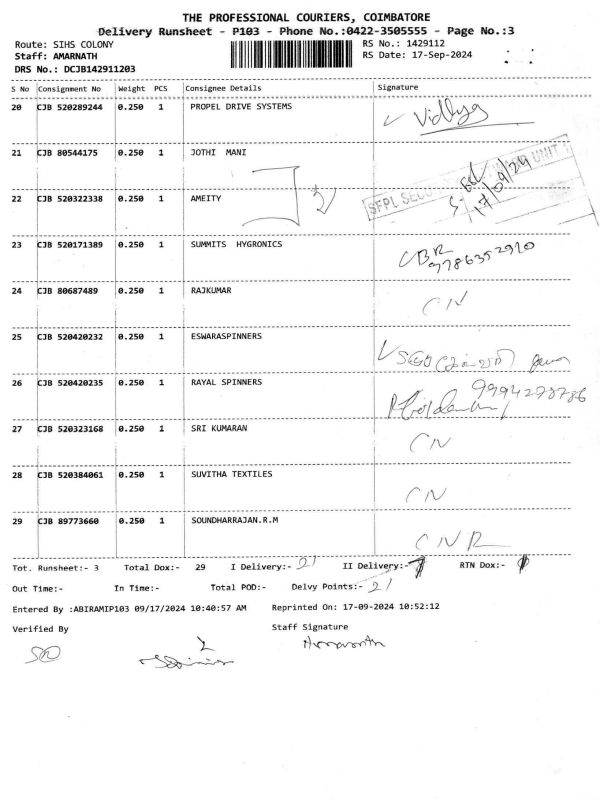 THE PROFESSIONAL COURIERS, COIMBATORE
Delivery Runsheet - P103 - Phone No.:0422-3505555 - Page No.:3
Route: SIHS COLONY
RS No.: 1429112
Staff: AMARNATH
RS Date: 17-Sep-2024
DRS No.: DCJB142911203
S No Consignment No Weight PCS Consignee Details Signature
20 CJB 520289244 0.250 1 PROPEL DRIVE SYSTEMS Vidhya
21 CJB 80544175 1 0.250 1 JOTHI MANI
17/09/24
SFPL
22 CJB 520322338 0.250 1 AMEITY
23 CJB 520171389 0.250 1 SUMMITS HYGRONICS
9786352910
24 CJB 80687489 0.250 1 RAJKUMAR CN
25 CJB 520420232 0.250 1 ESWARASPINNERS
26 CJB 520420235 0.250 1 RAYAL SPINNERS
27 CJB 520323168 0.250 1 SRI KUMARAN CN
28 CJB 520384061 0.250 1 SUVITHA TEXTILES CN
29 CJB 89773660 0.250 1 SOUNDHARRAJAN.R.M CNR
Tot. Runsheet:- 3 Total Dox:- 29 I Delivery:- 21 II Delivery:- RTN Dox:-
Out Time:- In Time:- Total POD:- Delvy Points:- 21
Entered By :ABIRAMIP103 09/17/2024 10:40:57 AM Reprinted On: 17-09-2024 10:52:12
Verified By Staff Signature
Amarnath